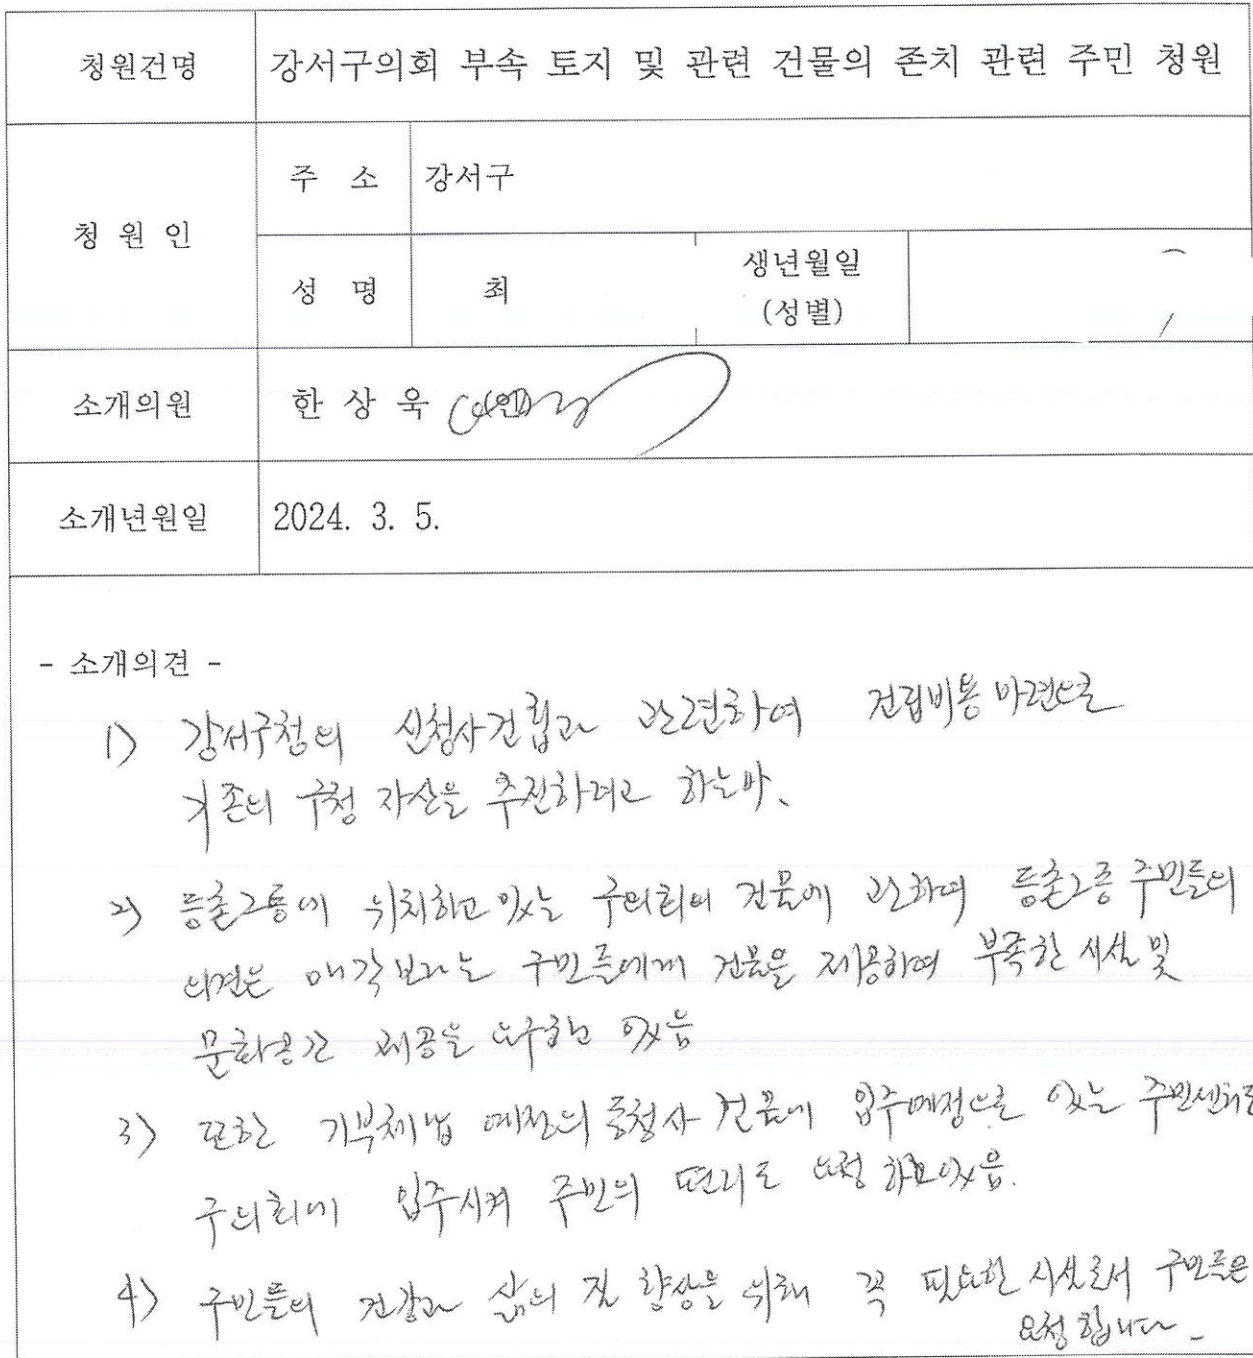 청원건명 강서구의회 부속 토지 및 관련 건물의 존치 관련 주민 청원
청 원 인
주 소 강서구
성 명 최 생년월일
(성별)
소개의원 한 상 욱 (인)
소개년원일 2024. 3. 5.
- 소개의견 -
1) 강서구청의 신청사건립과 관련하여 건립비용 마련으로
기존의 구청 자산을 추진하려고 하는바,
2) 등촌2동에 위치하고 있는 구의회의 건물에 관하여 등촌2동 주민들의
의견은 매각보다는 구민들에게 건물을 제공하여 부족한 시설 및
문화공간 제공을 요구하고 있음
3) 또한 기부체납 예정의 동청사 건물에 입주예정으로 있는 주민센터를
구의회에 입주시켜 주민의 편리로 요청 하고있음.
4) 구민들의 건강과 삶의 질 향상을 위해 꼭 필요한 시설로서 구민들은
요청 합니다.